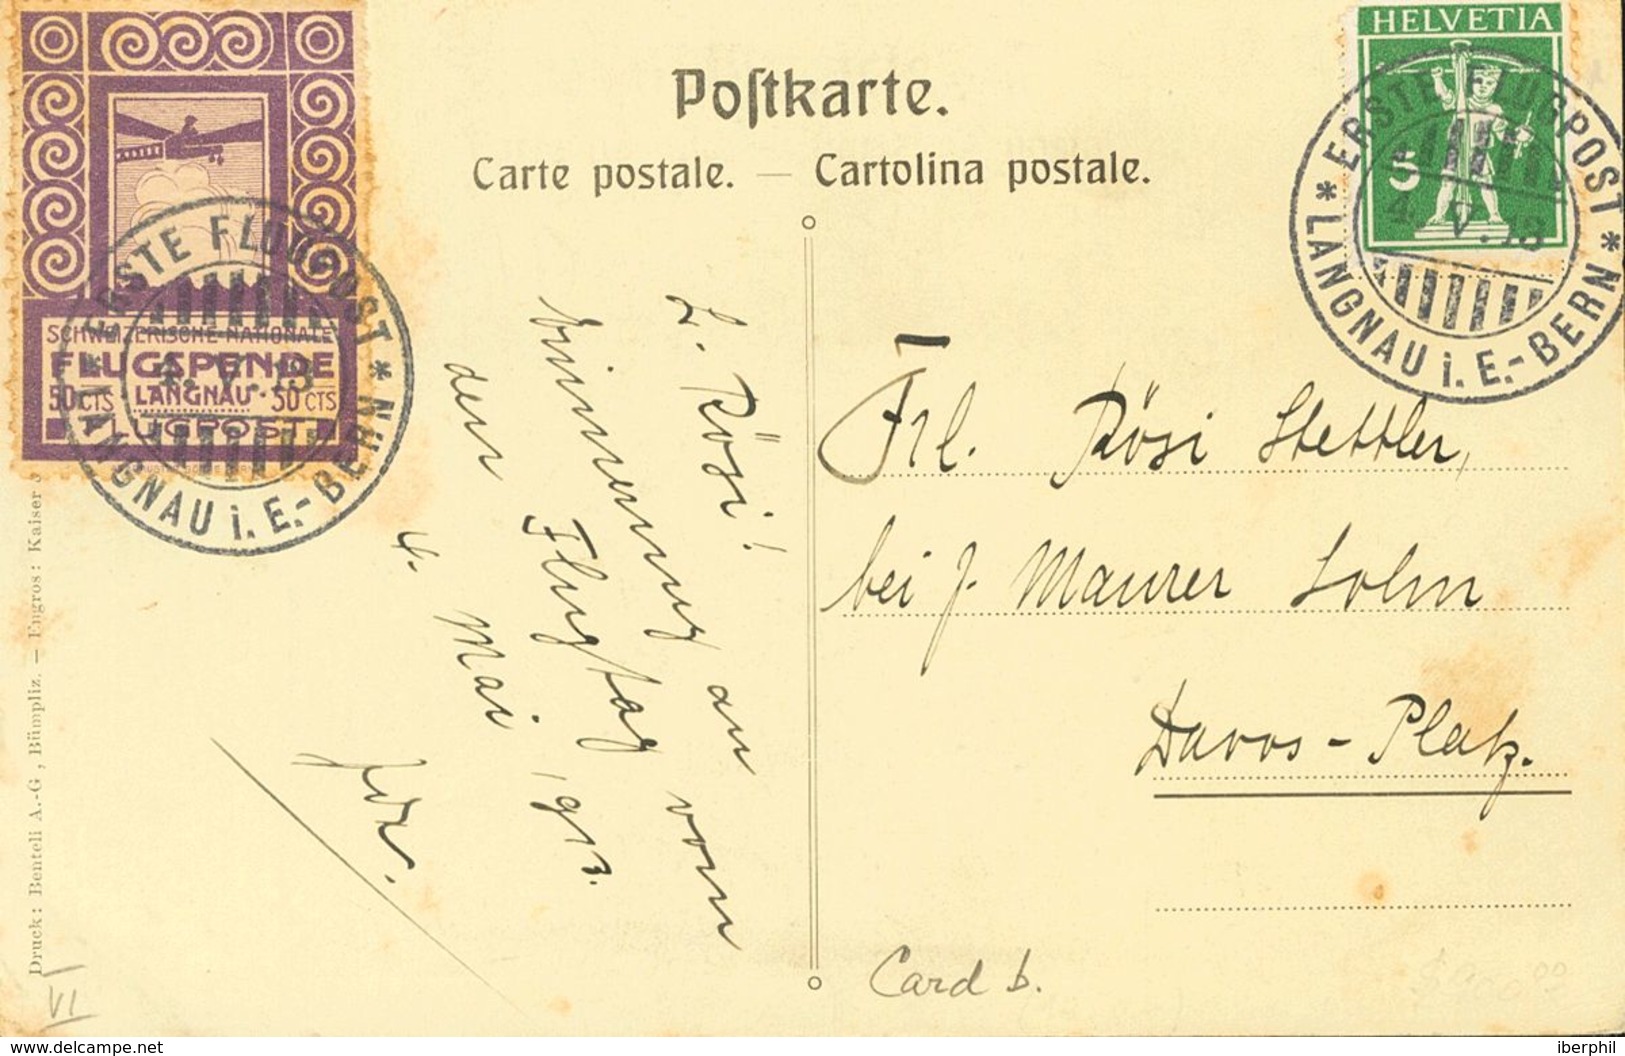 Postkarte.
Carte postale. — Cartolina postale.
SCHWEIZERISCHE NATIONALE
FLUGSPENDE
50 CTS LANGNAU · 50 CTS
FLUGPOST
* ERSTE FLUGPOST *
4. V. 13
LANGNAU i. E.-BERN
HELVETIA
5
* ERSTE FLUGPOST *
4. V. 13
LANGNAU i. E.-BERN
L. Rösi!
Erinnerung an vom
Flugtag
den 4. Mai 1913.
Frl. Rösi Stettler,
bei J. Maurer Sohn
Davos-Platz.
Card b.
VI
Druck: Benteli A.-G., Bümpliz. — Engros: Kaiser
www.delcampe.net
iberphil